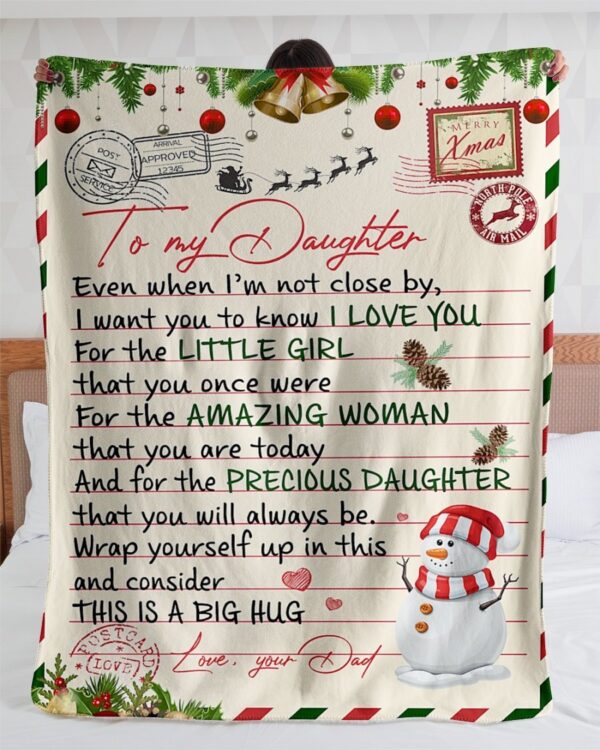 POST
SERVICE
ARRIVAL
APPROVED
12345
MERRY
Xmas
NORTH POLE
AIR MAIL
To my Daughter
Even when I'm not close by,
I want you to know I LOVE YOU
For the LITTLE GIRL
that you once were
For the AMAZING WOMAN
that you are today
And for the PRECIOUS DAUGHTER
that you will always be.
Wrap yourself up in this
and consider
THIS IS A BIG HUG
POSTCARD
LOVE
Love, your Dad